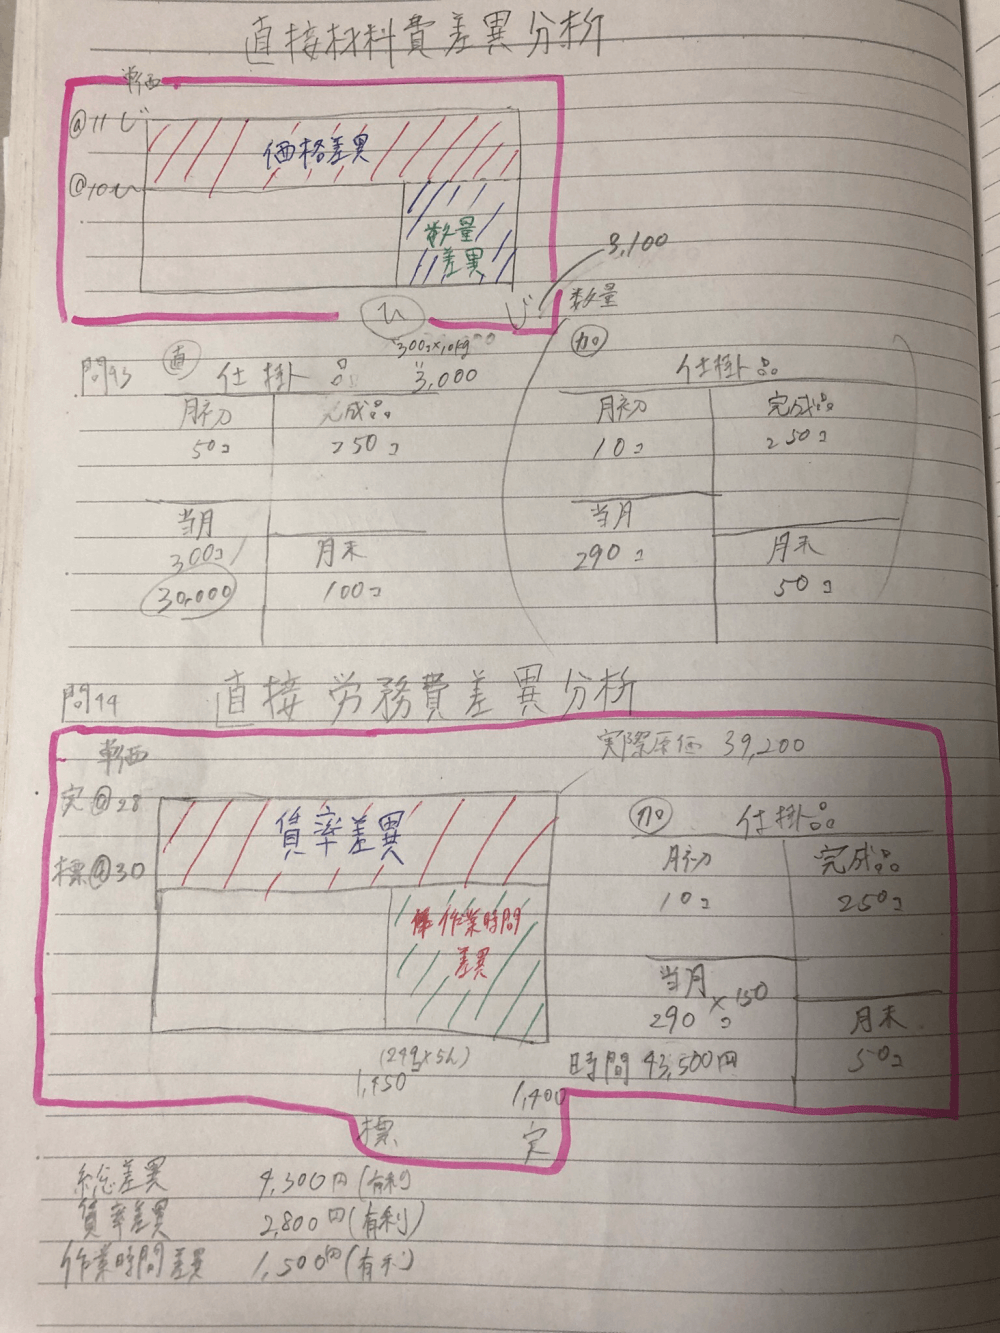 直接材料費差異分析
単価
@11 じ
価格差異
@10 ひ
数量
差異
3,100
ひ じ 数量
300コ×10kg
問43 直 仕掛品 3,000
月初 完成品
50コ 250コ
当月
300コ 月末
30,000 100コ
加 仕掛品
月初 完成品
10コ 250コ
当月
290コ 月末
50コ
問44 直接労務費差異分析
単価 実際原価 39,200
実@28
賃率差異
標@30
作業時間
差異
加 仕掛品
月初 完成品
10コ 250コ
当月 ×150
290コ 月末
時間 43,500円 50コ
1,450 1,400
標 実
総差異 4,300円(有利
賃率差異 2,800円(有利)
作業時間差異 1,500円(有利)